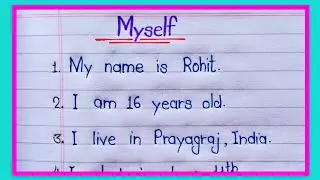 Myself
1. My name is Rohit.
2. I am 16 years old.
3. I live in Prayagraj, India.